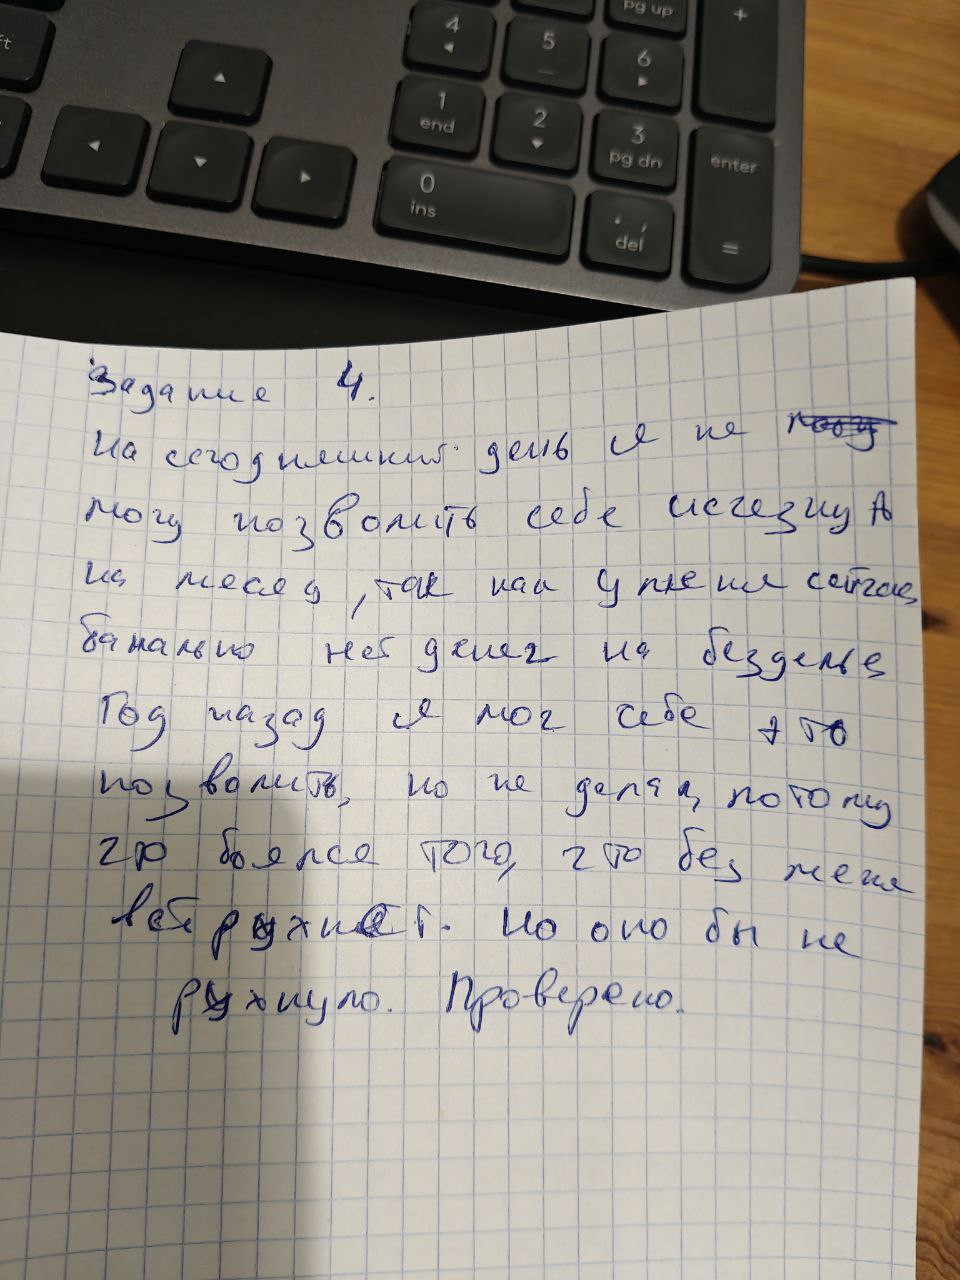 ft
pg up
+
4
5
6
1
end
2
3
pg dn
enter
0
ins
. ,
del
=
Задание 4.
На сегодняшний день я не
могу позволить себе исчезнуть
на месяц, так как у меня сейчас
банально нет денег на безделье
Год назад я мог себе это
позволить, но не делал, потому
что боялся того, что без меня
всё рухнет. Но оно бы не
рухнуло. Проверено.